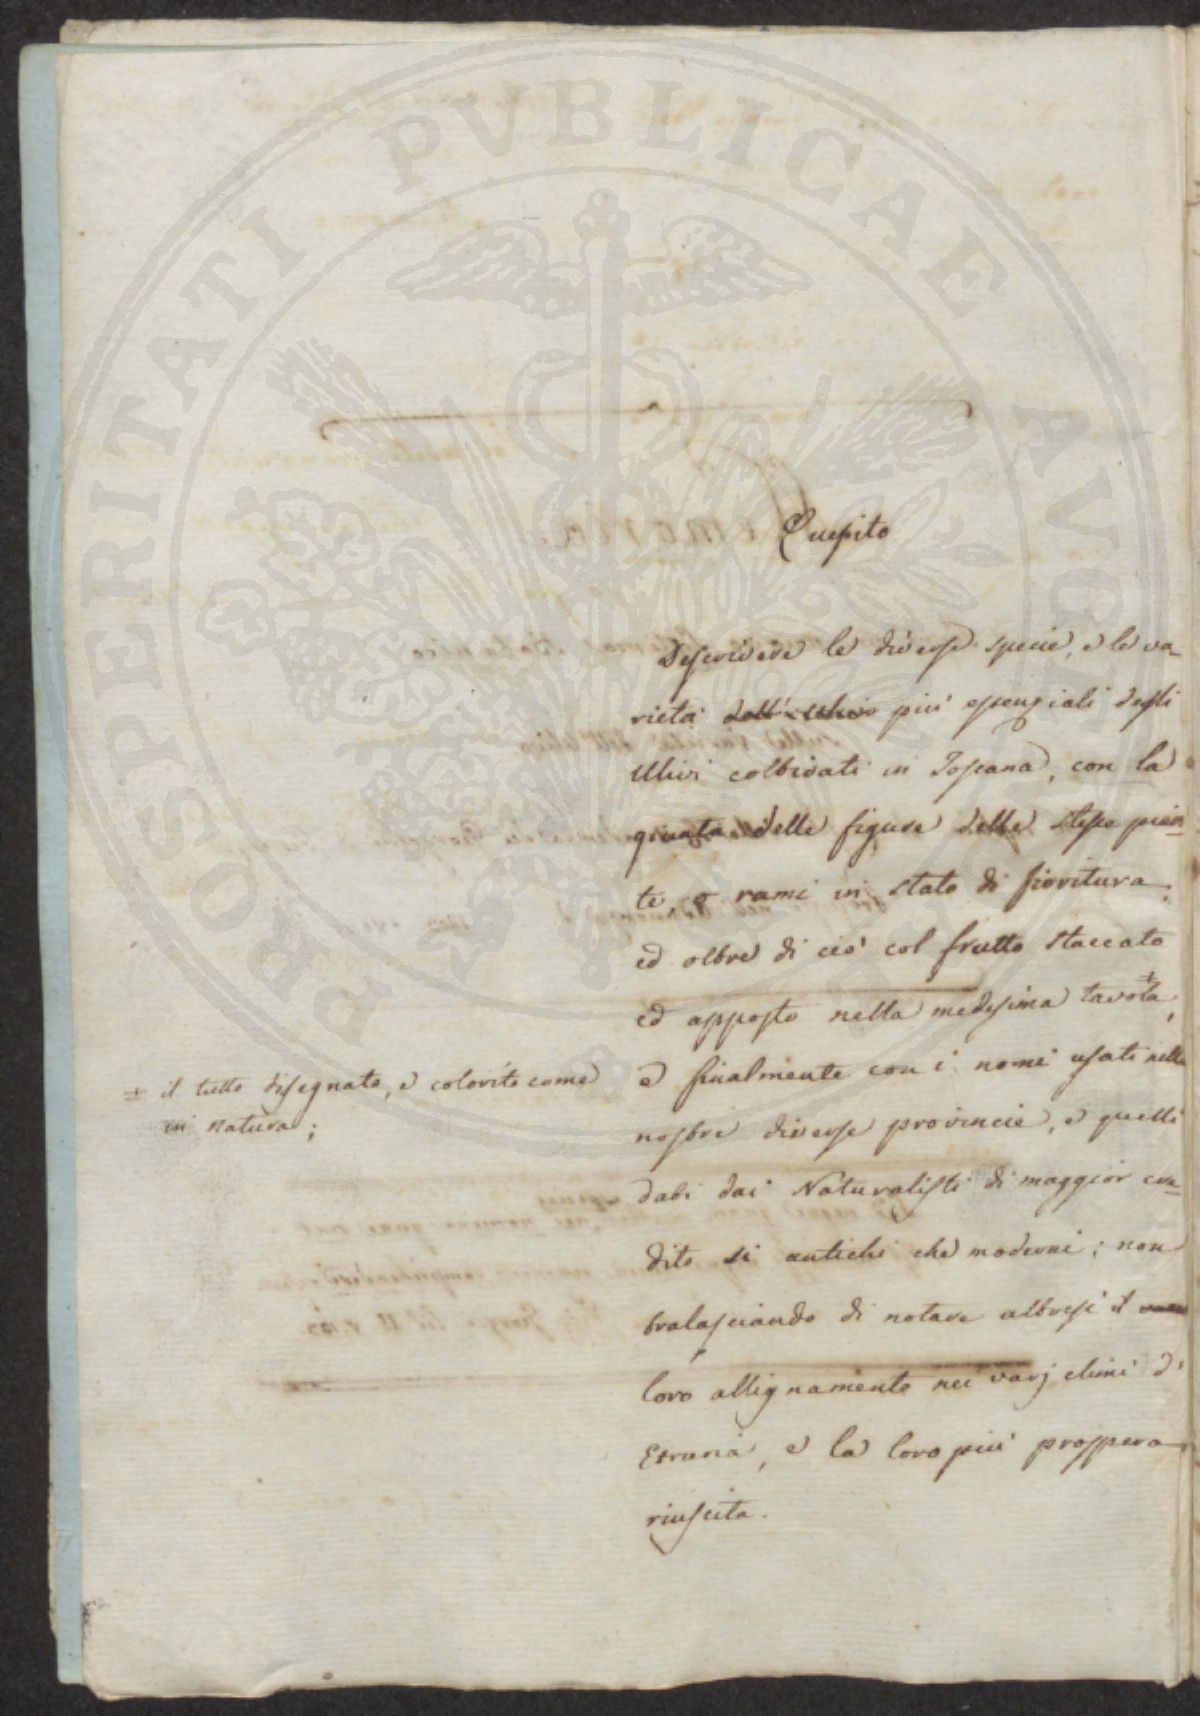 PROSPERITATI PVBLICAE AVGE
Quesito
Descrivere le diverse specie, e le va-
rietà dell'Ulivo più essenziali degli
Ulivi coltivati in Toscana, con la
giunta delle figure delle stesse pian-
te, o rami in stato di fioritura,
ed oltre di ciò col frutto staccato
ed apposto nella medesima tavola ±,
e finalmente con i nomi usati nelle
nostre diverse provincie, e quelli
dati dai Naturalisti di maggior cre-
dito si antichi che moderni; non
tralasciando di notare altresì il
loro allignamento nei varj climi d'
Etruria, e la loro più prospera
riuscita.
± il tutto disegnato, e colorito come
in natura;